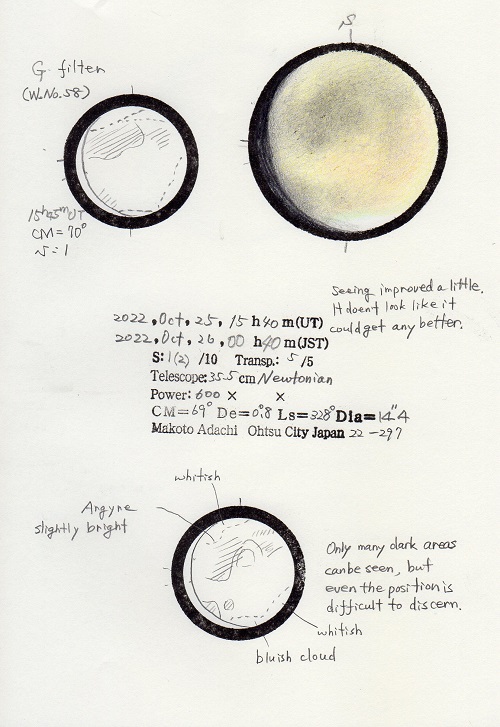 S
G filter
(W.No.58)
15h45mUT
CM=70°
S=1
Seeing improved a little.
It doent look like it
could get any better.
2022, Oct, 25, 15h40m(UT)
2022, Oct, 26, 00h40m(JST)
S:1(2)/10 Transp.: 5/5
Telescope:35.5cm Newtonian
Power: 600× ×
CM=69° De=0°.8 Ls=328° Dia=14".4
Makoto Adachi Ohtsu City Japan 22-297
whitish
Argyre
slightly bright
Only many dark areas
canbe seen, but
even the position is
difficult to discern.
whitish
bluish cloud